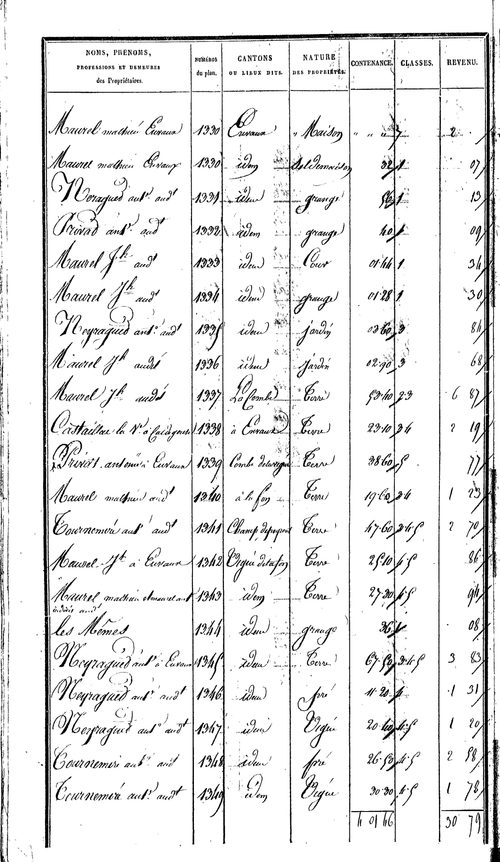 NOMS, PRÉNOMS, PROFESSIONS ET DEMEURES des Propriétaires. NUMÉROS du plan. CANTONS OU LIEUX DITS. NATURE DES PROPRIÉTÉS. CONTENANCE. CLASSES. REVENU.
Maurel mathieu Envaux 1330 Envaux " Maison " " " 7 2 "
Maurel mathieu Envaux 1330 idem Sol de maison 32 1 07
Neyragued ant.e aud.t 1331 idem grange 56 1 13
Privat ant.e aud.t 1332 idem grange 40 1 09
Maurel J.h aud.t 1333 idem Cour 01.44 1 34
Maurel J.h aud.t 1334 idem grange 01.28 1 30
Neyragued ant.e aud.t 1335 idem jardin 03.60 3 84
Maurel J.h aud.t 1336 idem jardin 02.90 3 68
Maurel J.h aud.t 1337 La Combe Terre 53.40 2.3 6 87
la V.e à 1338 à Envaux Terre 23.10 3.4 2 19
Privat antoine à Envaux 1339 Combe Terre 38.60 5 77
Maurel mathieu aud.t 1340 à la fon Terre 19.60 3.4 1 23
Tournemire ant.e aud.t 1341 Champ Terre 47.60 3.4.5 2 70
Maurel J.h à Envaux 1342 Vigne de la fon Terre 25.10 4.5 86
Maurel mathieu 1343 idem Terre 27.30 4.5 94
aud.t
les Mêmes 1344 idem grange 36 1 08
Neyragued ant.e à Envaux 1345 idem Terre 67.50 3.4.5 3 83
Neyragued ant.e aud.t 1346 idem pré 11.20 4 1 31
Neyragued ant.e aud.t 1347 idem Vigne 20.40 4.5 1 20
Tournemire ant.e aud.t 1348 idem pré 26.50 4.5 2 58
Tournemire ant.e aud.t 1349 idem Vigne 30.30 4.5 1 78
4 01 46 30 79